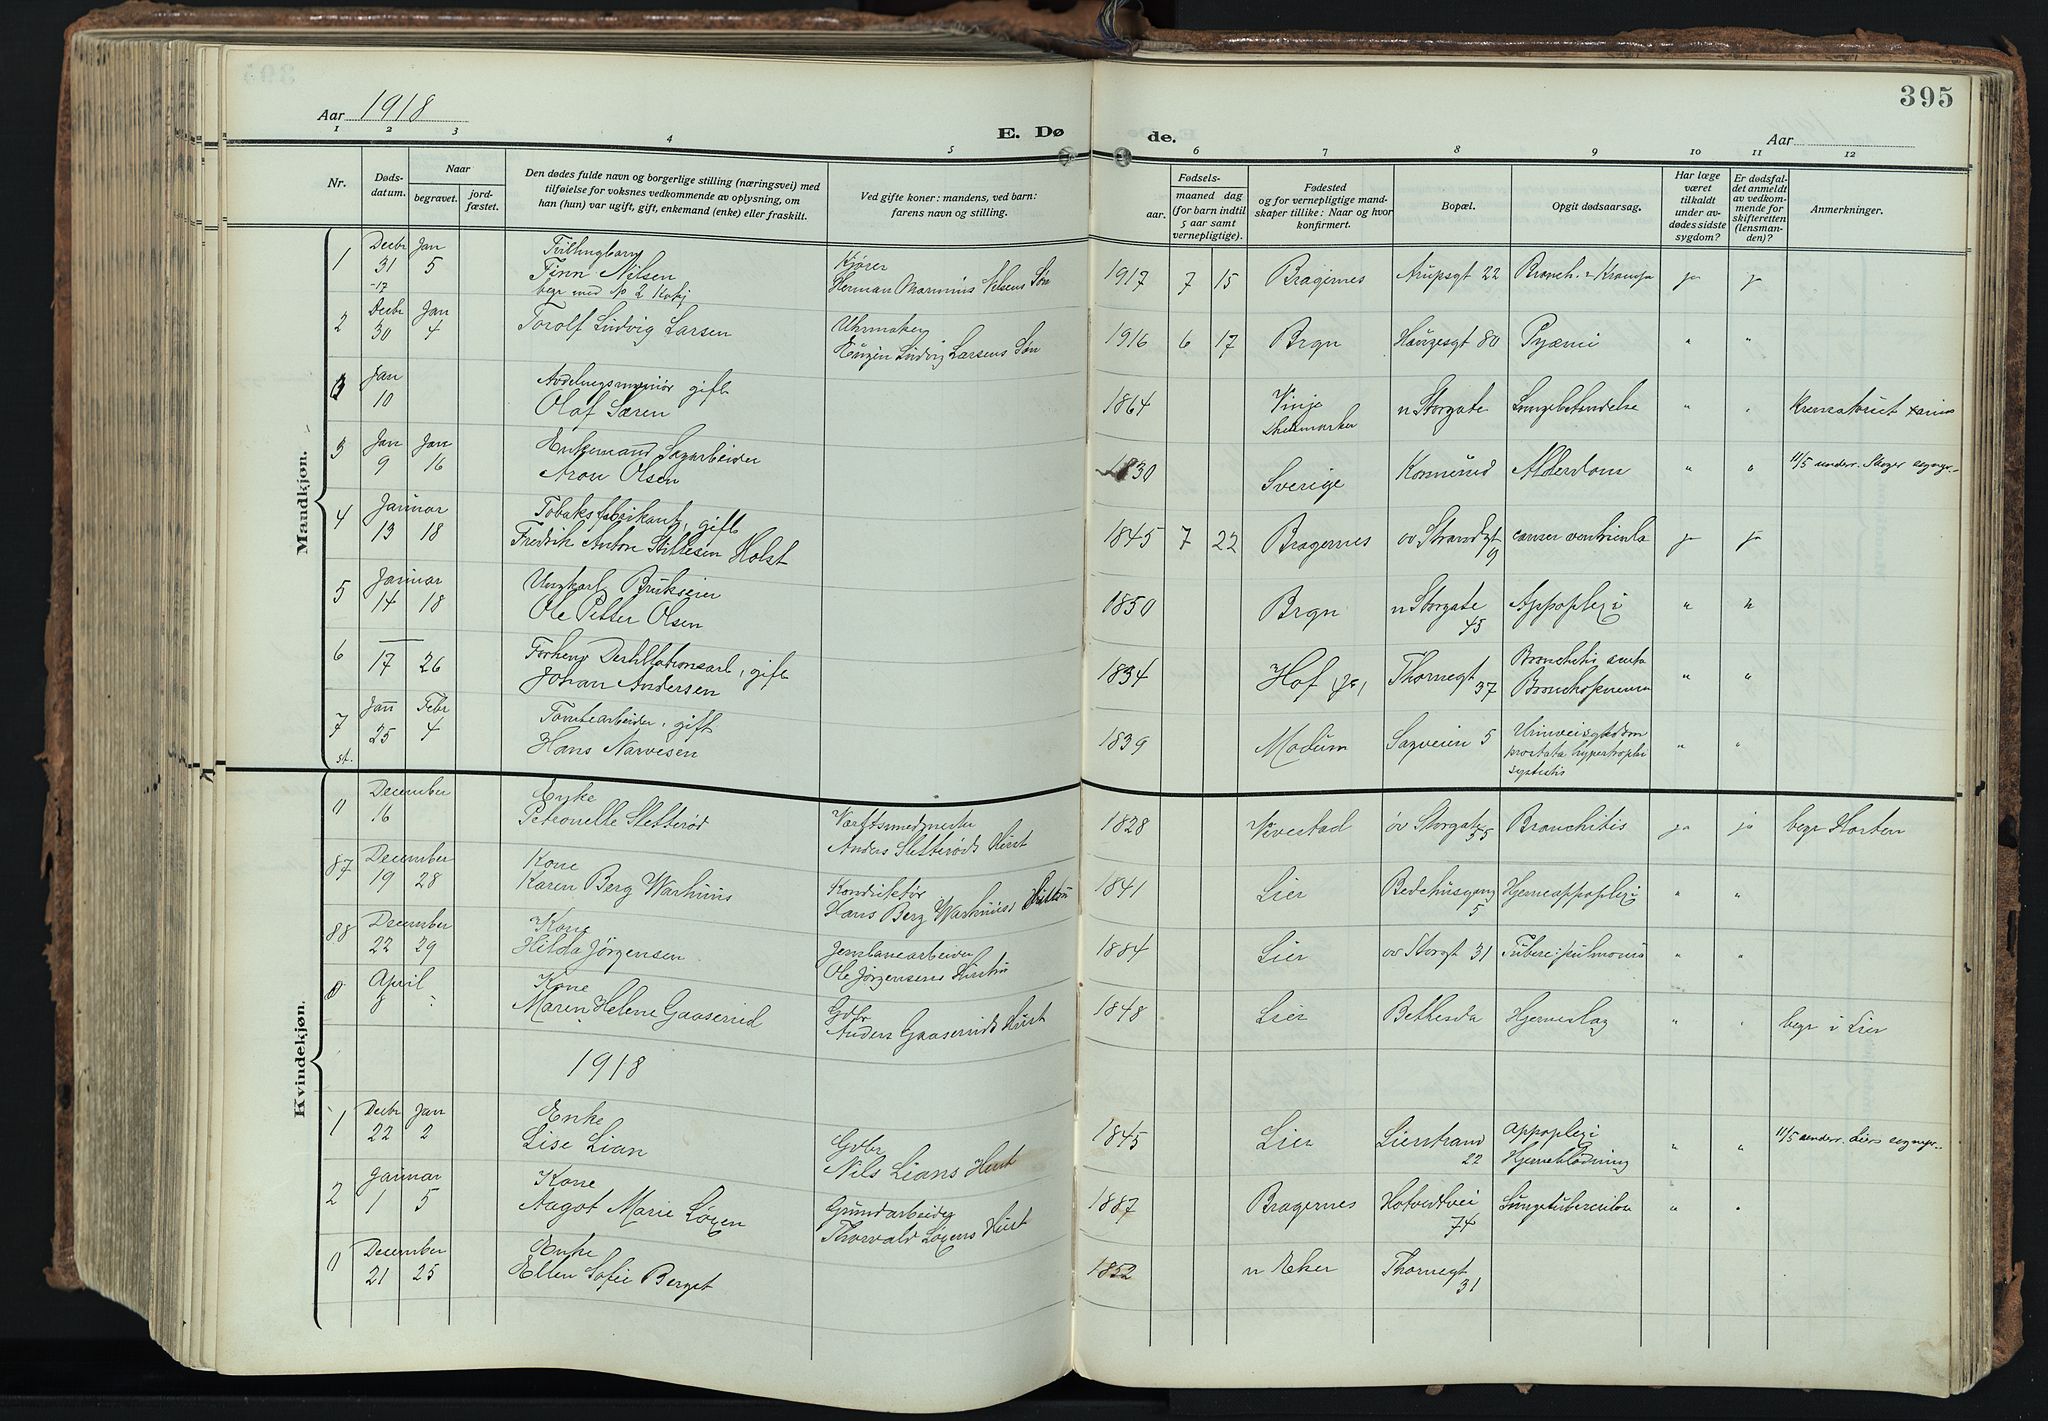 395
Aar 1918
E. Døde.
Aar
1 2 3 4 5 6 7 8 9 10 11 12
Nr.
Døds-
datum.
Naar
begravet.
jord-
fæstet.
Den dødes fulde navn og borgerlige stilling (næringsvei) med
tilføielse for voksnes vedkommende av oplysning, om
han (hun) var ugift, gift, enkemand (enke) eller fraskilt.
Ved gifte koner: mandens, ved barn:
farens navn og stilling.
Fødsels-
aar.
maaned dag
(for barn indtil
5 aar samt
vernepligtige).
Fødested
og for vernepligtige mand-
skaper tillike: Naar og hvor
konfirmert.
Bopæl.
Opgit dødsaarsag.
Har læge
været
tilkaldt
under av-
dødes sidste
sygdom?
Er dødsfal-
det anmeldt
av vedkom-
mende for
skifteretten
(lensman-
den)?
Anmerkninger.
Mandkjøn.
1 Decbr 31 -17 Jan 5 Tvillingbarn
Finn Nilsen
begr med No 2 Kvkj
Herman Marinius Nilsens Søn
1917 7 15 Bragernes Arupsgt 22 Bronch. ja ja
2 Decbr 30 Jan 4 Torolf Ludvig Larsen
Uhrmaker
Ludvig Larsens Søn
1916 6 17 Brgn Haugesgt 80 Pyæmi " "
0 Jan 10 gift
Olaf Søren
1864 Vinje
n Storgate Lungebetændelse " "
3 Jan 9 Jan 16 Enkemand Sagarbeider
Aron Olsen
1830 Sverige Alderdom " " 11/5 underr. Skoger sognepr.
4 Januar 13 18 Tobaksfabrikant, gift
Fredrik Anton Holst
1845 7 22 Bragernes øv Strandgt 9 cancer ventricula ja ja
5 Januar 14 18 Ungkarl Brukseier
Ole Petter Olsen
1850 Brgn n Storgate 45 Appoplexi " "
6 17 26 gift
Johan Andersen
1834 Hof Thornegt 37 Bronchitis acuta
Bronchopneumoni " "
7 st. Jan 25 Febr 4 Tomtearbeider, gift
Hans Narvesen
1839 Modum Sagveien 5 Urinveissykdom
prostata hypertrophi
" "
Kvindekjøn.
0 December 16 Enke
Petronelle Sletterød
Anders Sletterøds Hust
1828 øv Storgate 55 Bronchitis ja ja begr Horten
87 December 19 28 Kone
Karen Berg Warhuus
Konduktør
Hans Berg Warhuus Hustru
1841 Lier Bedehusgang 5 Hjerneappoplexi " "
88 December 22 29 Kone
Hilda Jørgensen
Jernbanearbeider
Ole Jørgensens Hustru
1884 Lier øv Storgt 31 Tuberc. pulmonis " "
0 April 8 Kone
Maren Helene Gaaserud
Gdbr
Anders Gaaseruds Hust
1848 Lier Bethesda Hjerneslag " " begr i Lier
1918
1 Decbr 22 Jan 2 Enke
Lise Lian
Gdbr
Nils Lians Hust
1845 Lier Lierstrand 22 Appoplexi
Hjerneblødning " " 11/5 underr. Liers sognepr.
2 Januar 1 5 Kone
Aagot Marie Løgen
Grundarbeider
Thorvald Løgens Hust
1887 Bragernes Hotvedtvei 74 Lungetuberculose " "
0 December 21 25 Enke
Ellen Sofie Berget
1852 n Eker Thornegt 31